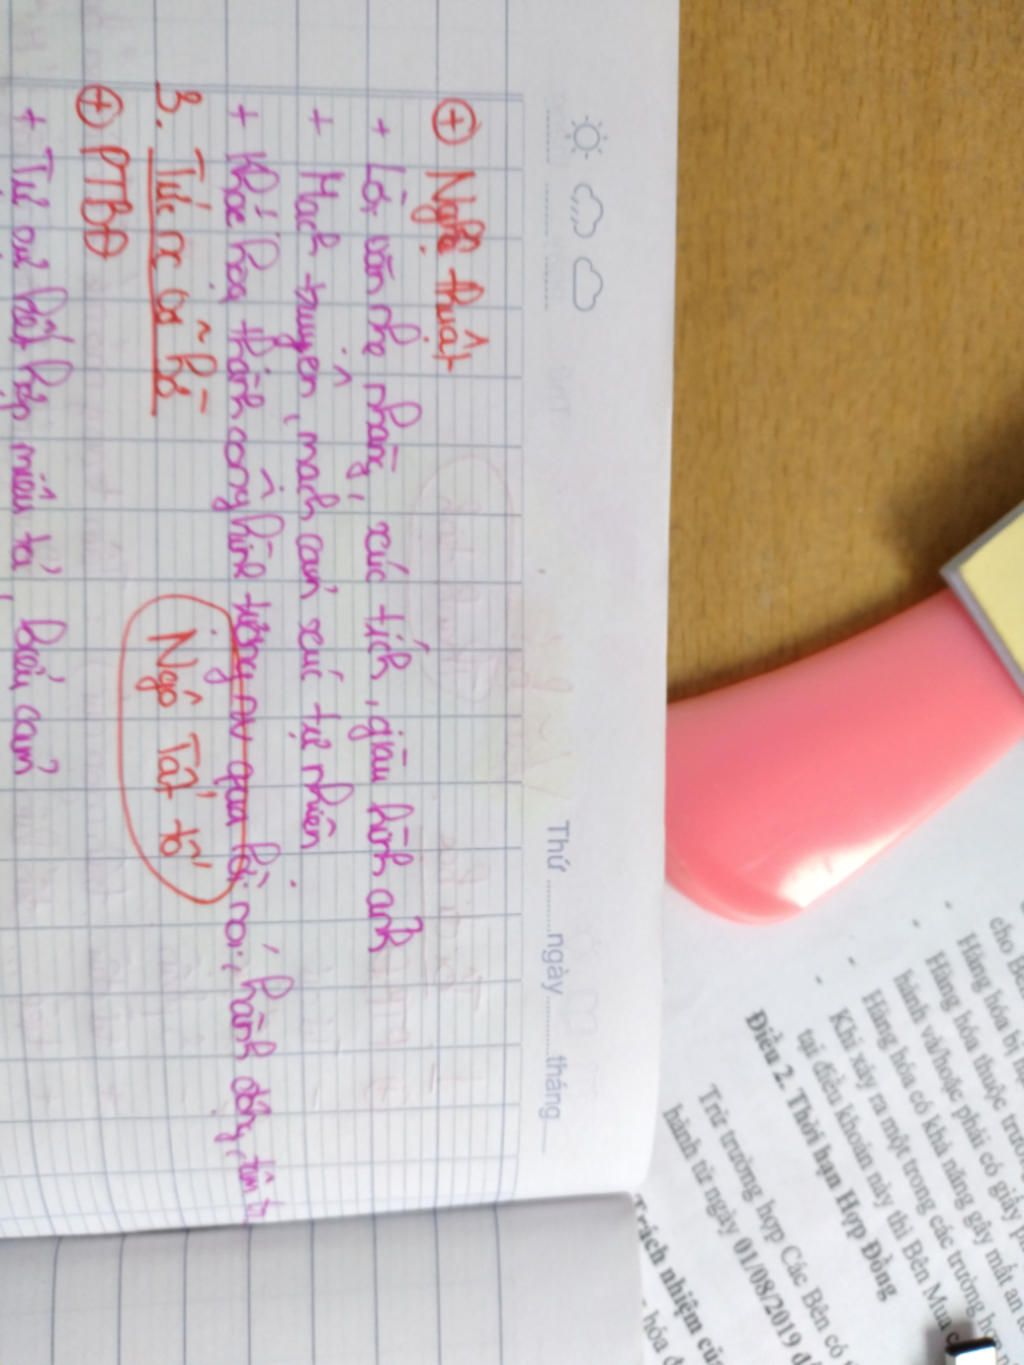 Thứ ........ngày........tháng
⊕ Nghệ thuật
+ Lời văn nhẹ nhàng, xúc tích, giàu hình ảnh
+ Mạch truyện, mạch cảm xúc tự nhiên
+ Khắc họa thành công hình tượng nv qua lời nói, hành động, tâm
3. Tức nc vỡ bờ
Ngô Tất Tố
⊕ PTBĐ
+ Tự sự kết hợp miêu tả, biểu cảm
cho Bên
Hàng hóa bị
Hàng hóa thuộc
hành và/hoặc phải có giấy
Hàng hóa có khả năng gây mất an
Khi xảy ra một trong các trường hợp
tại điều khoản này thì Bên Mua
Điều 2. Thời hạn Hợp Đồng
Trừ trường hợp Các Bên có
hành từ ngày 01/08/2019
Trách nhiệm
hóa